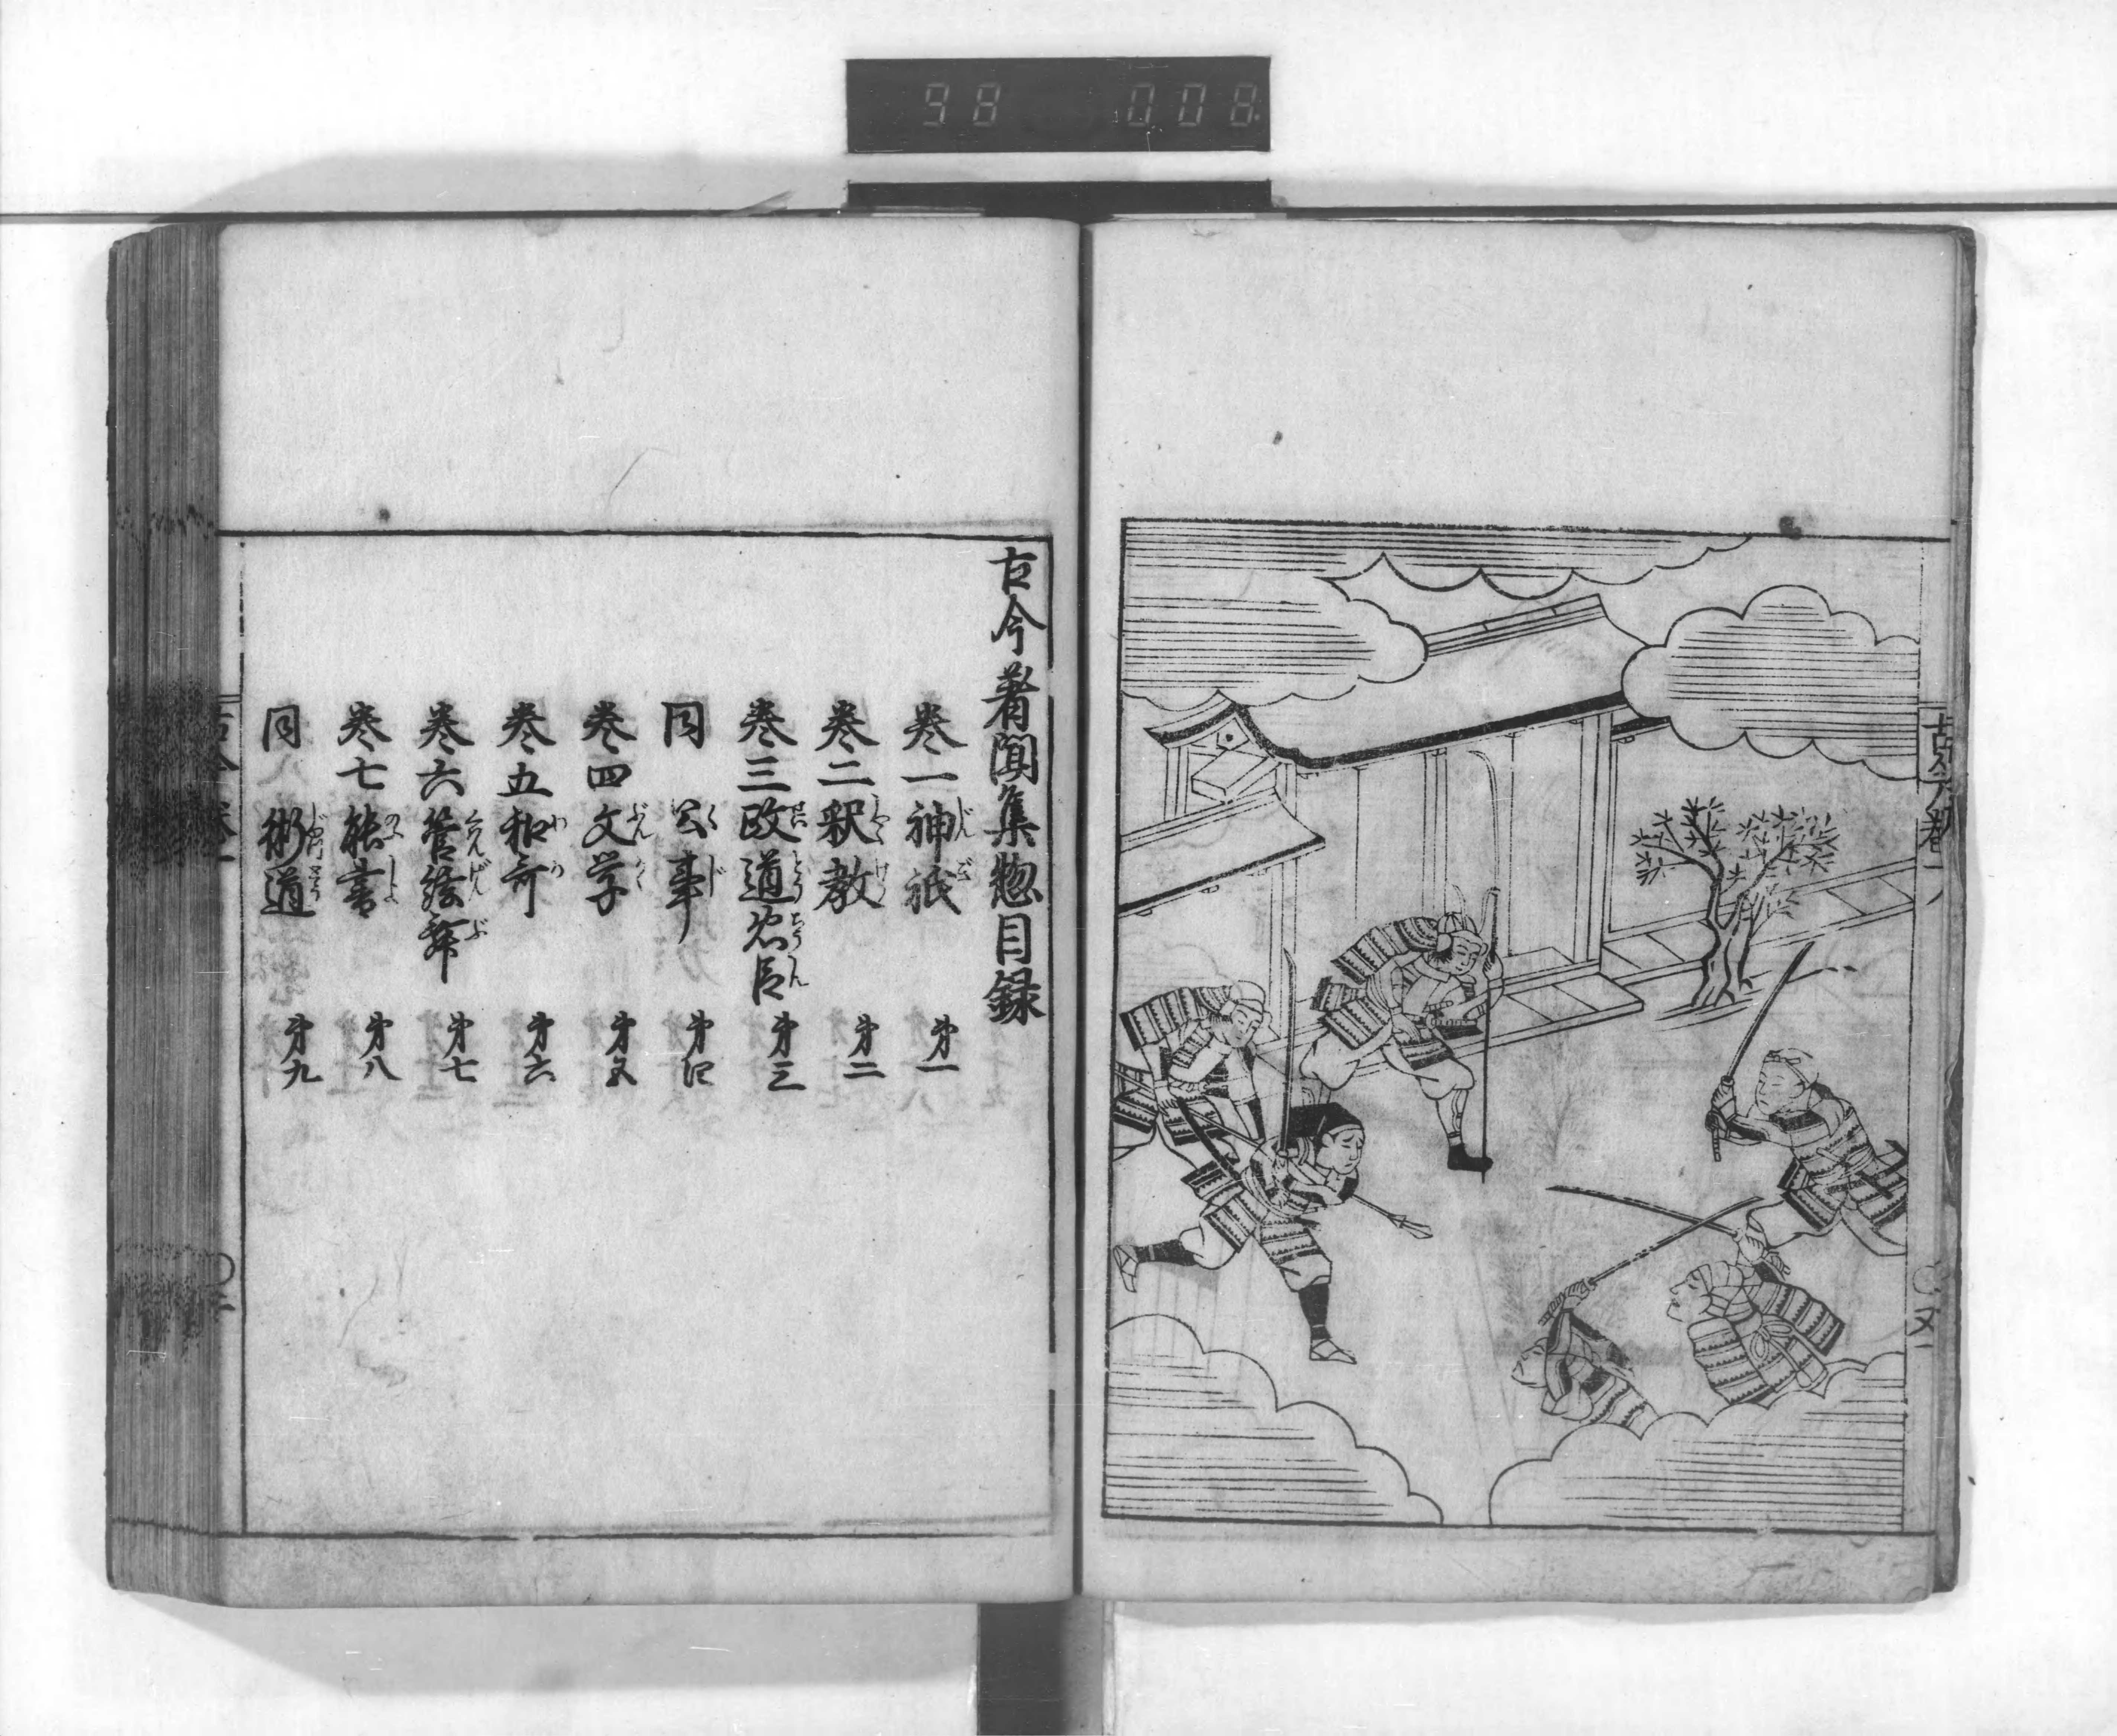 98 008
古今著聞集惣目録
巻一 神祇 第一
巻二 釈教 第二
巻三 政道忠臣 第三
同 公事 第四
巻四 文学 第五
巻五 和哥 第六
巻六 管絃舞 第七
巻七 能書 第八
同 術道 第九